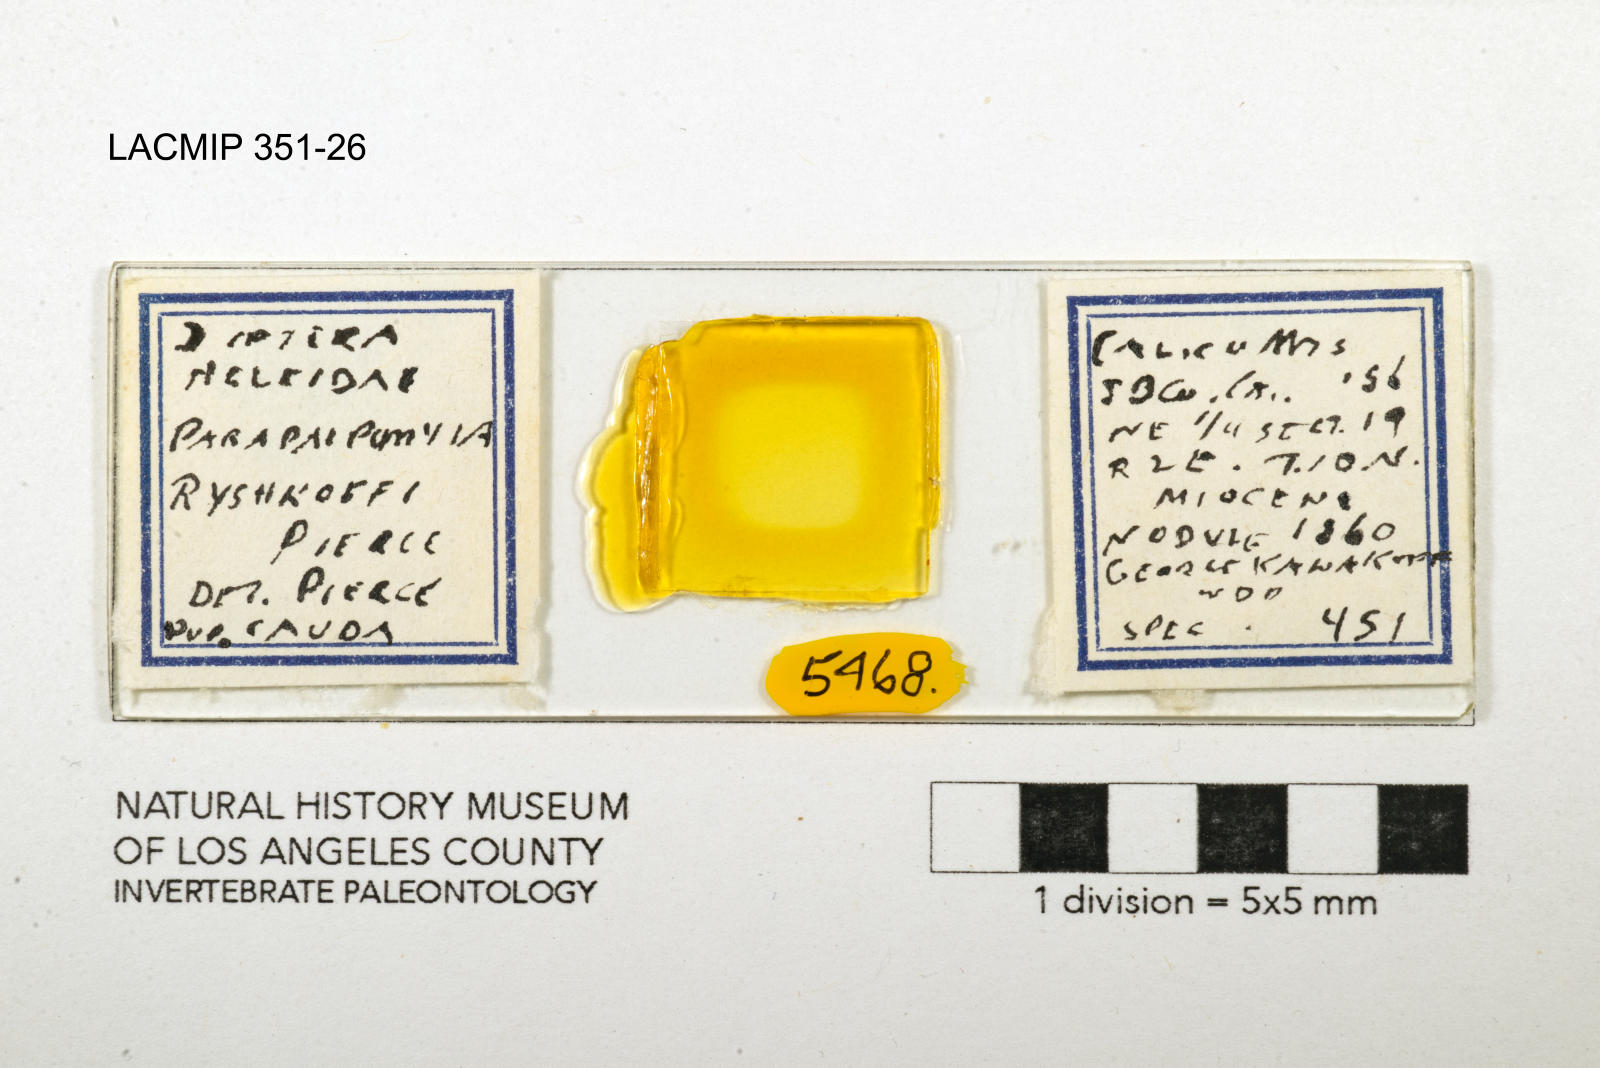 LACMIP 351-26
DIPTERA
HELEIDAE
PARAPALPOMYIA
RYSHKOFFI
PIERCE
DET. PIERCE
PUP. CAUDA
CALICO MTS
SBCO., CA.. '56
NE 1/4 SECT. 19
R2E. T.10N.
MIOCENE
NODULE 1860
GEORGE KANAKOFF
SPEC. 451
5468.
NATURAL HISTORY MUSEUM
OF LOS ANGELES COUNTY
INVERTEBRATE PALEONTOLOGY
1 division = 5x5 mm